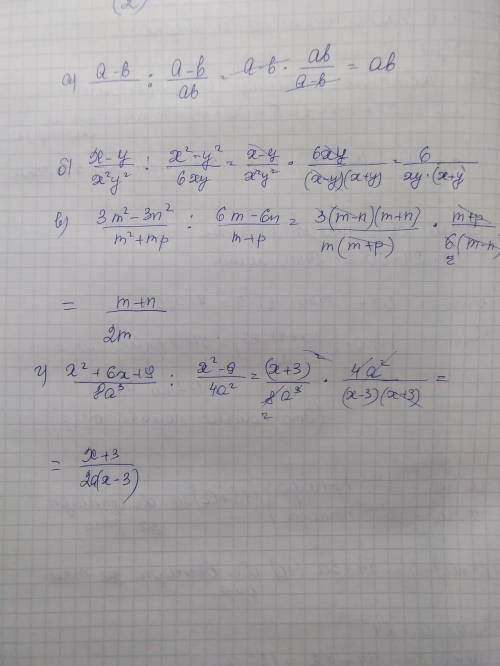 (2)
а) a-b : a-b/ab = a-b · ab/a-b = ab
б) x-y/x²y² : x²-y²/6xy = x-y/x²y² · 6xy/(x-y)(x+y) = 6/xy·(x+y
в) 3m²-3n²/m²+mp : 6m-6n/m+p = 3(m-n)(m+n)/m(m+p) · m+p/6(m-n 2
= m+n/2m
г) x²+6x+9/8a³ : x²-9/4a² = (x+3)²/8a³ 2 · 4a²/(x-3)(x+3) =
= x+3/2a(x-3)